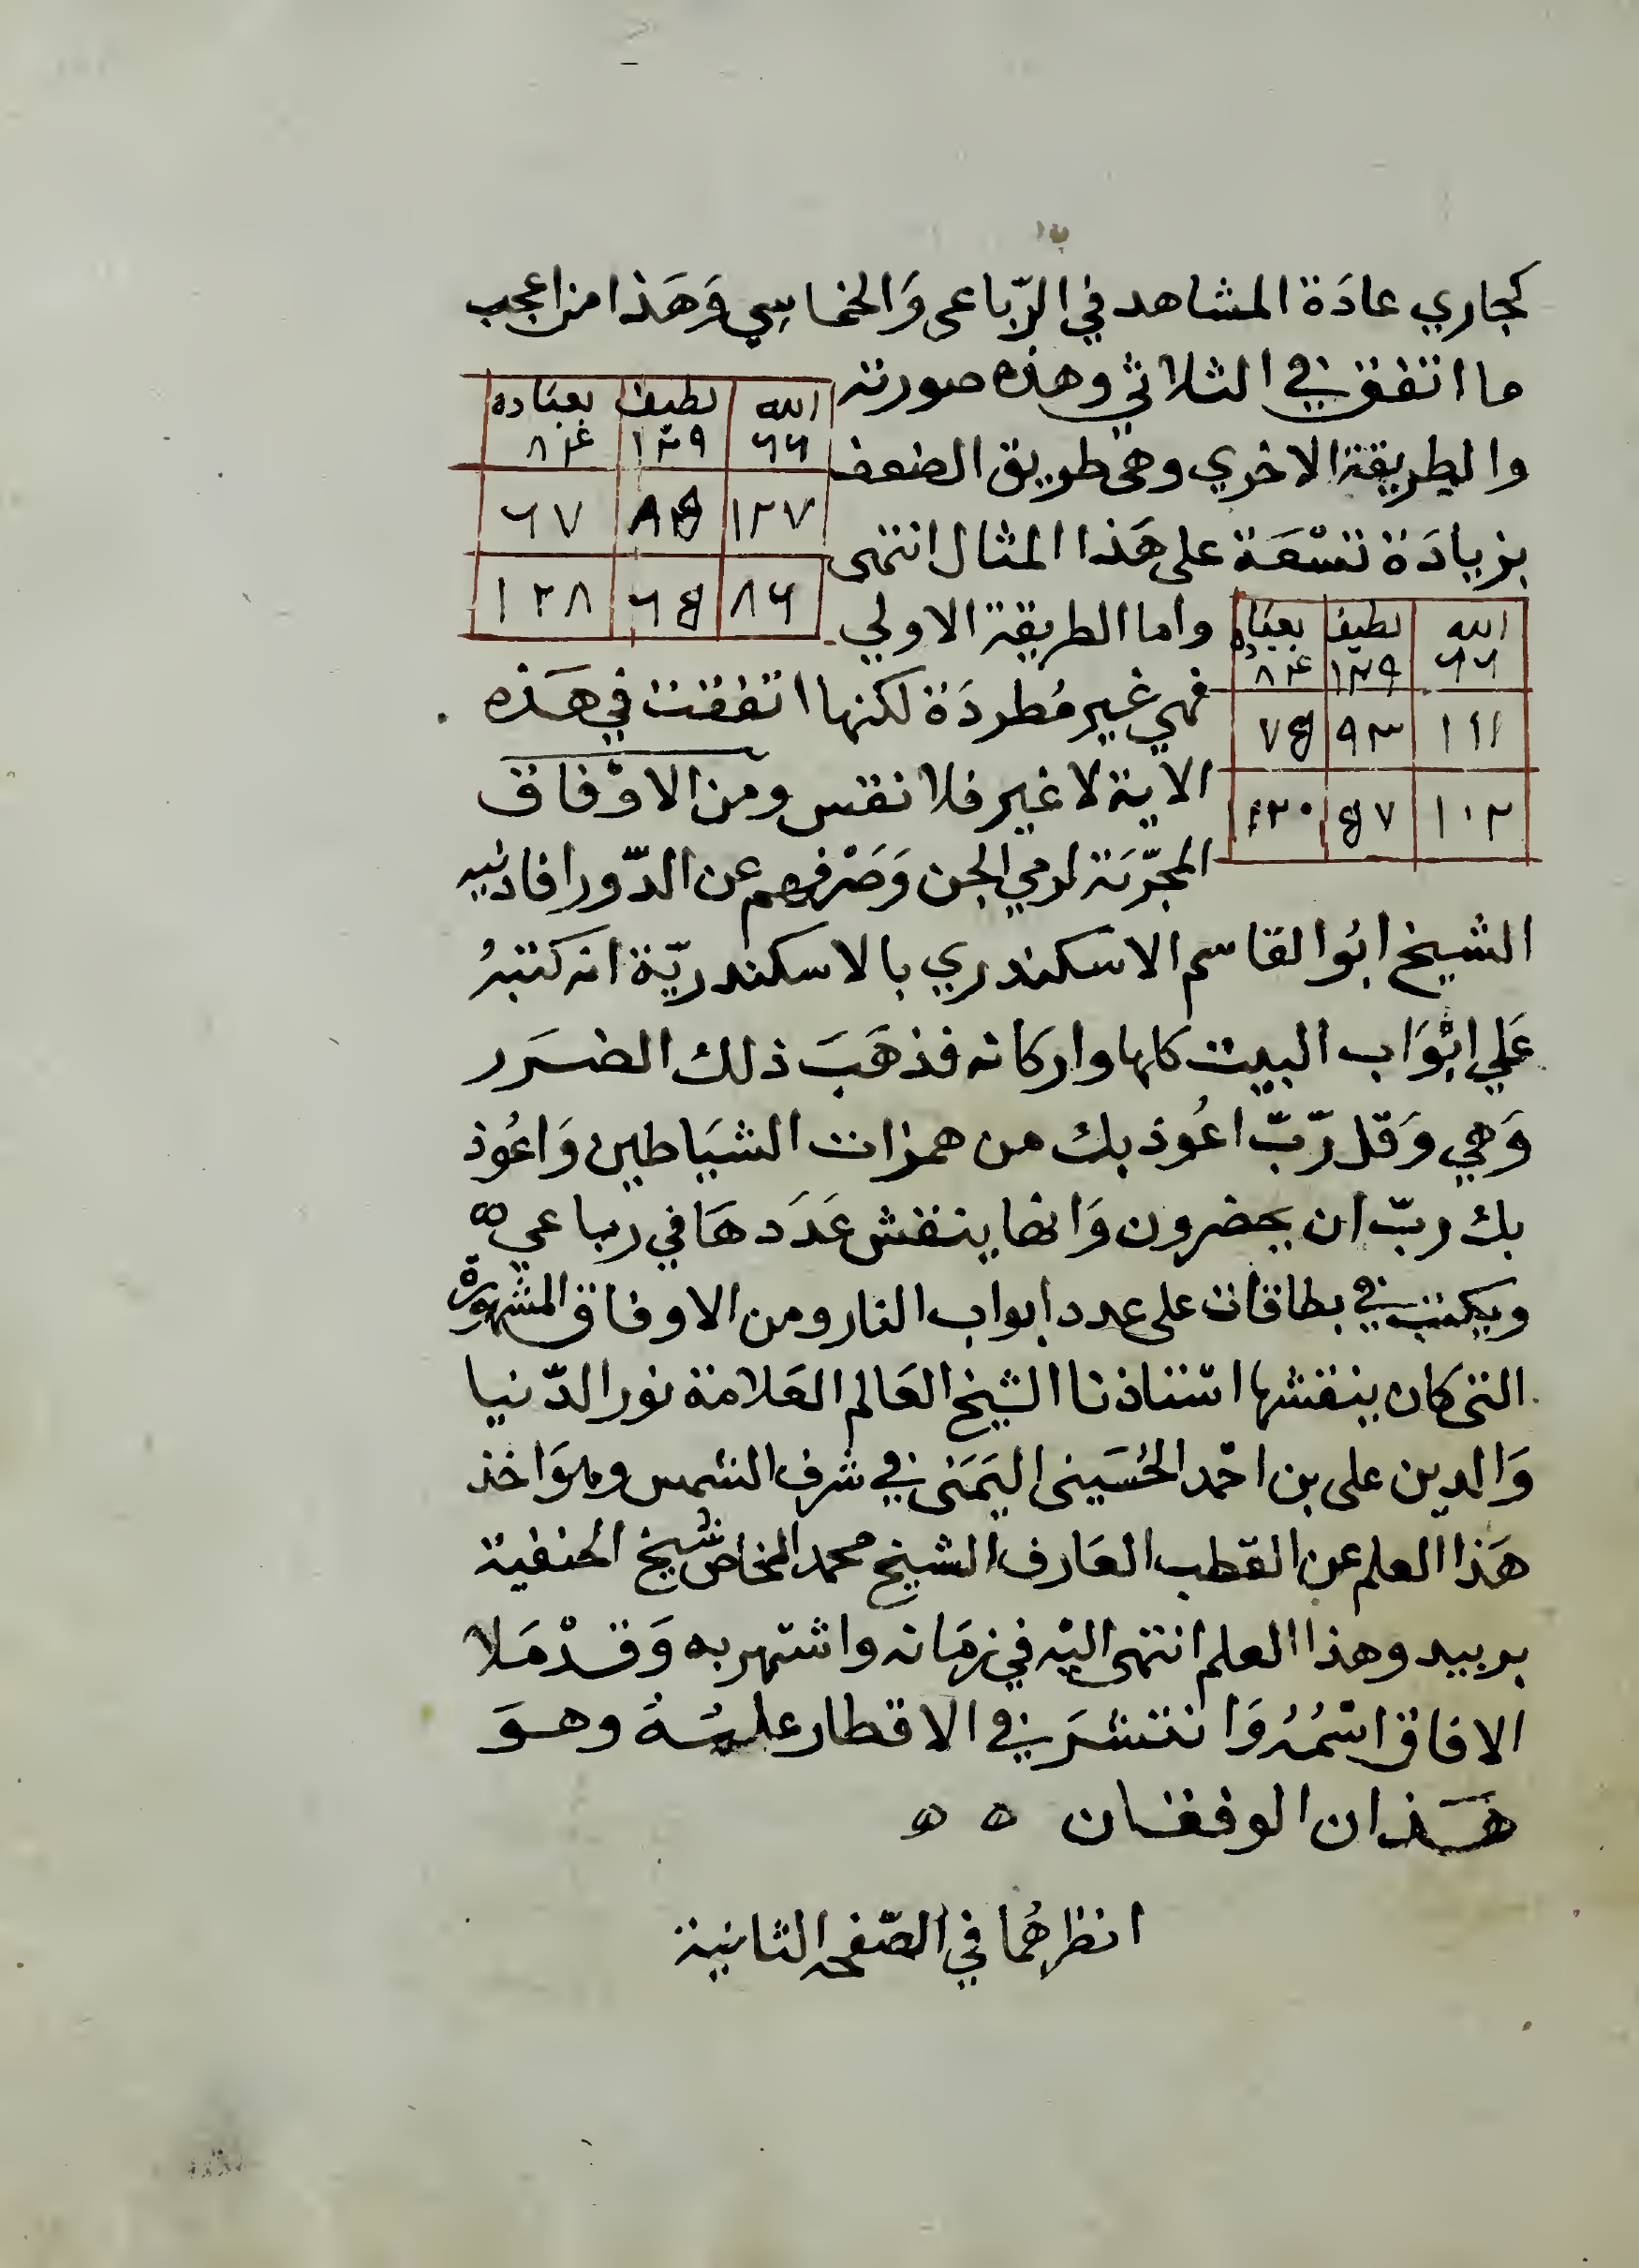 كجاري عادَة المشاهد في الرّباعي وَالخماسي وَهَذا من اعجب
ما اتفق في الثلاثي وهذه صورته
الله لطيف بعباده
٦٦ ١٢٩ ٨٤
١٢٧ ٨٥ ٦٧
٨٦ ٦٥ ١٢٨
والطريقة الاخري وهي طريق الضعف
بزيادَة تسْعَة على هَذا المثال انتهى
الله لطيف بعباده
٦٦ ١٢٩ ٨٤
١١١ ٩٣ ٧٥
١٠٢ ٥٧ ١٢٠
واما الطريقة الاولي
فهي غير مُطردَة لكنها اتفقت في هَذه
الاية لا غير فلا نقس ومن الاوْفاق
المجرّبَة لرمي الجن وَصَرْفهم عن الدّور افادنيه
الشيخ ابُو القاسم الاسكندري بالاسكندريّة انه كتبهُ
عَلي ابْوَاب البيت كلها واركانه فذهَبَ ذلك الضرَر
وَهي وَقل رّبّ اعُوذ بك من همزات الشيَاطين وَاعُوذ
بك ربّ ان يحضرون وَانها ينقش عَدَدهَا في رباعي ه
ويكتب في بطاقات على عدد ابواب النار ومن الاوفاق المشهورة
التي كان ينقشها استاذنا الشيخ العَالم العَلامة نور الدّنيا
وَالدين على بن احْمد الحُسَيني اليَمَني في شرف الشمس وهوَ اخذ
هَذا العلم عن القطب العَارف الشيخ محمد النخاض شيخ الحنفية
بزبيد وهذا العلم انتهى اليْه في زمَانه واشتهر به وَقدْ مَلا
الافاق اسْمُهُ وَانتشرَ في الاقطار علمُهُ وهوَ
هَذان الوفقان ه ه
انظرهُما في الصّفحه الثانية